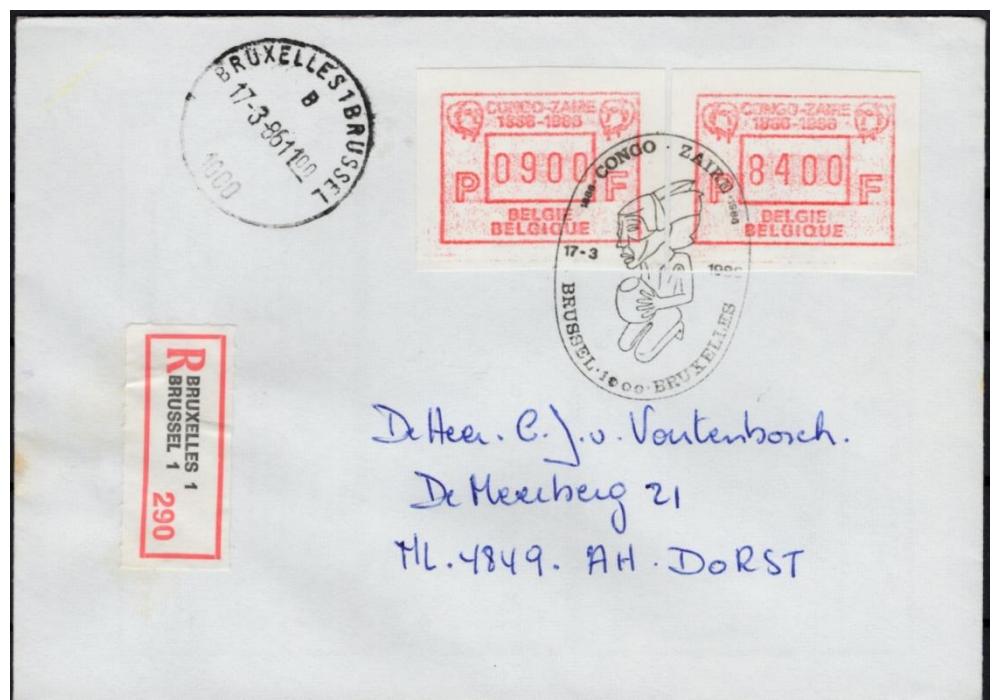 BRUXELLES 1 BRUSSEL
B
17-3-86 11 00
1000
CONGO-ZAIRE
1886-1986
0900
P F
BELGIE
BELGIQUE
CONGO-ZAIRE
1886-1986
8400
P F
BELGIE
BELGIQUE
1886 CONGO · ZAIRE · 1986
17-3
BRUSSEL · 1000 · BRUXELLES
R
BRUXELLES 1
BRUSSEL 1
290
De Heer. C. J. v. Voutenbosch.
De Meerberg 21
NL. 4849. AH. DORST